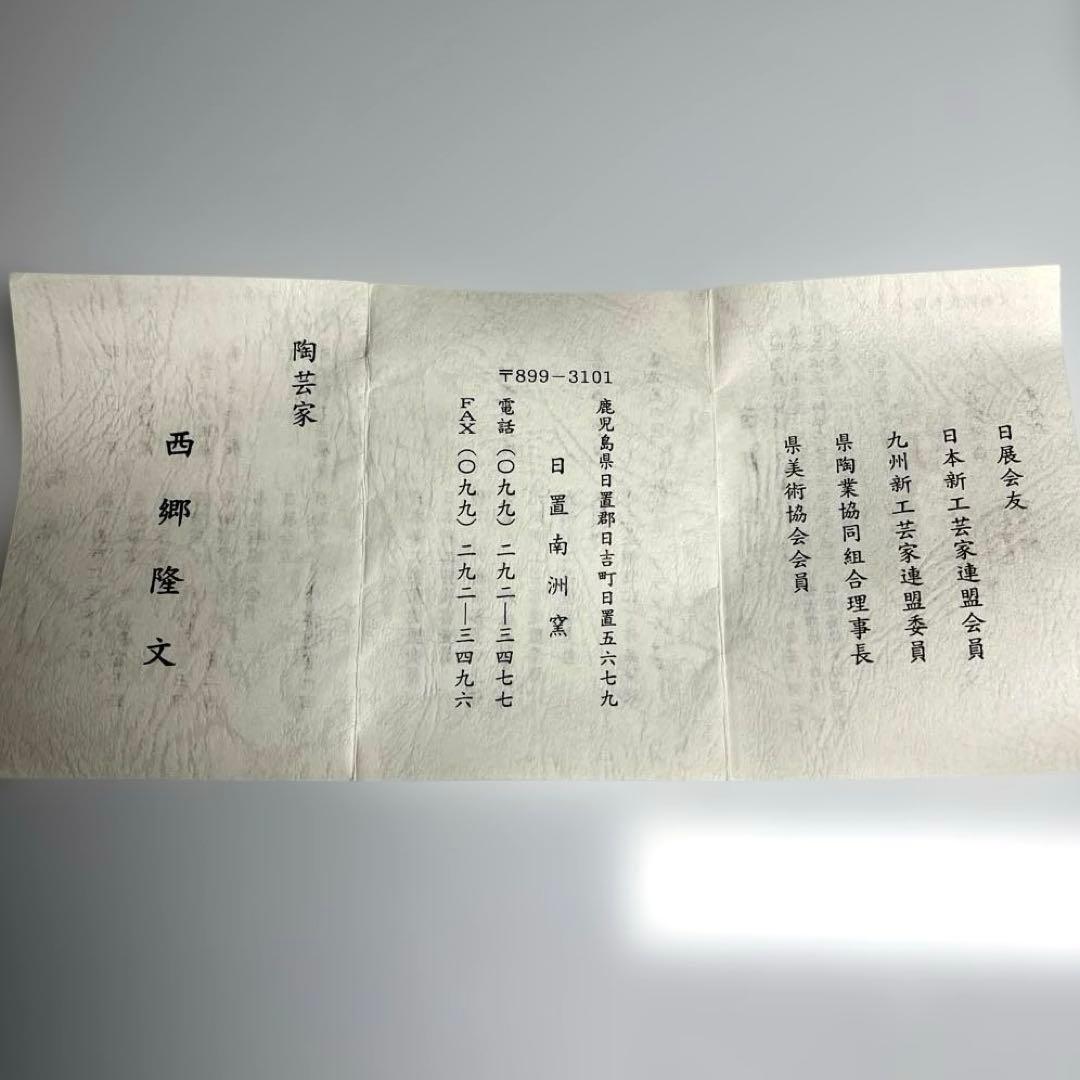 日展会友
日本新工芸家連盟会員
九州新工芸家連盟委員
県陶業協同組合理事長
県美術協会会員
〒899-3101
鹿児島県日置郡日吉町日置五六七九
日置南洲窯
電話（〇九九）二九二―三四七七
FAX（〇九九）二九二―三四九六
陶芸家
西郷隆文